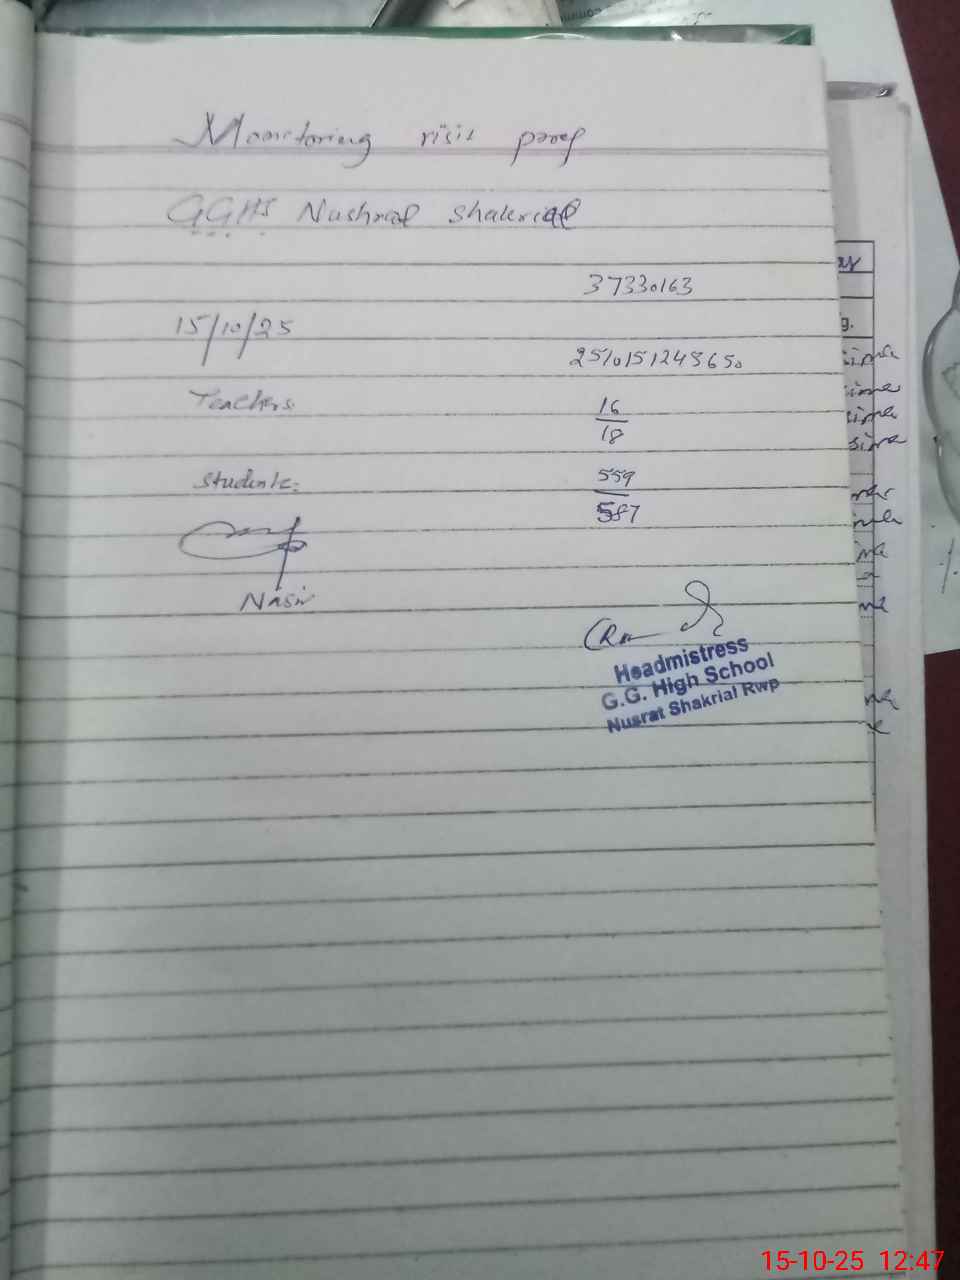 Monitoring visit proof
GGHS Nushrat Shakrial
37330163
15/10/25
2510151243650
Teachers
16
18
Students:
559
587
Nasir
Headmistress
G.G. High School
Nusrat Shakrial Rwp
15-10-25 12:47